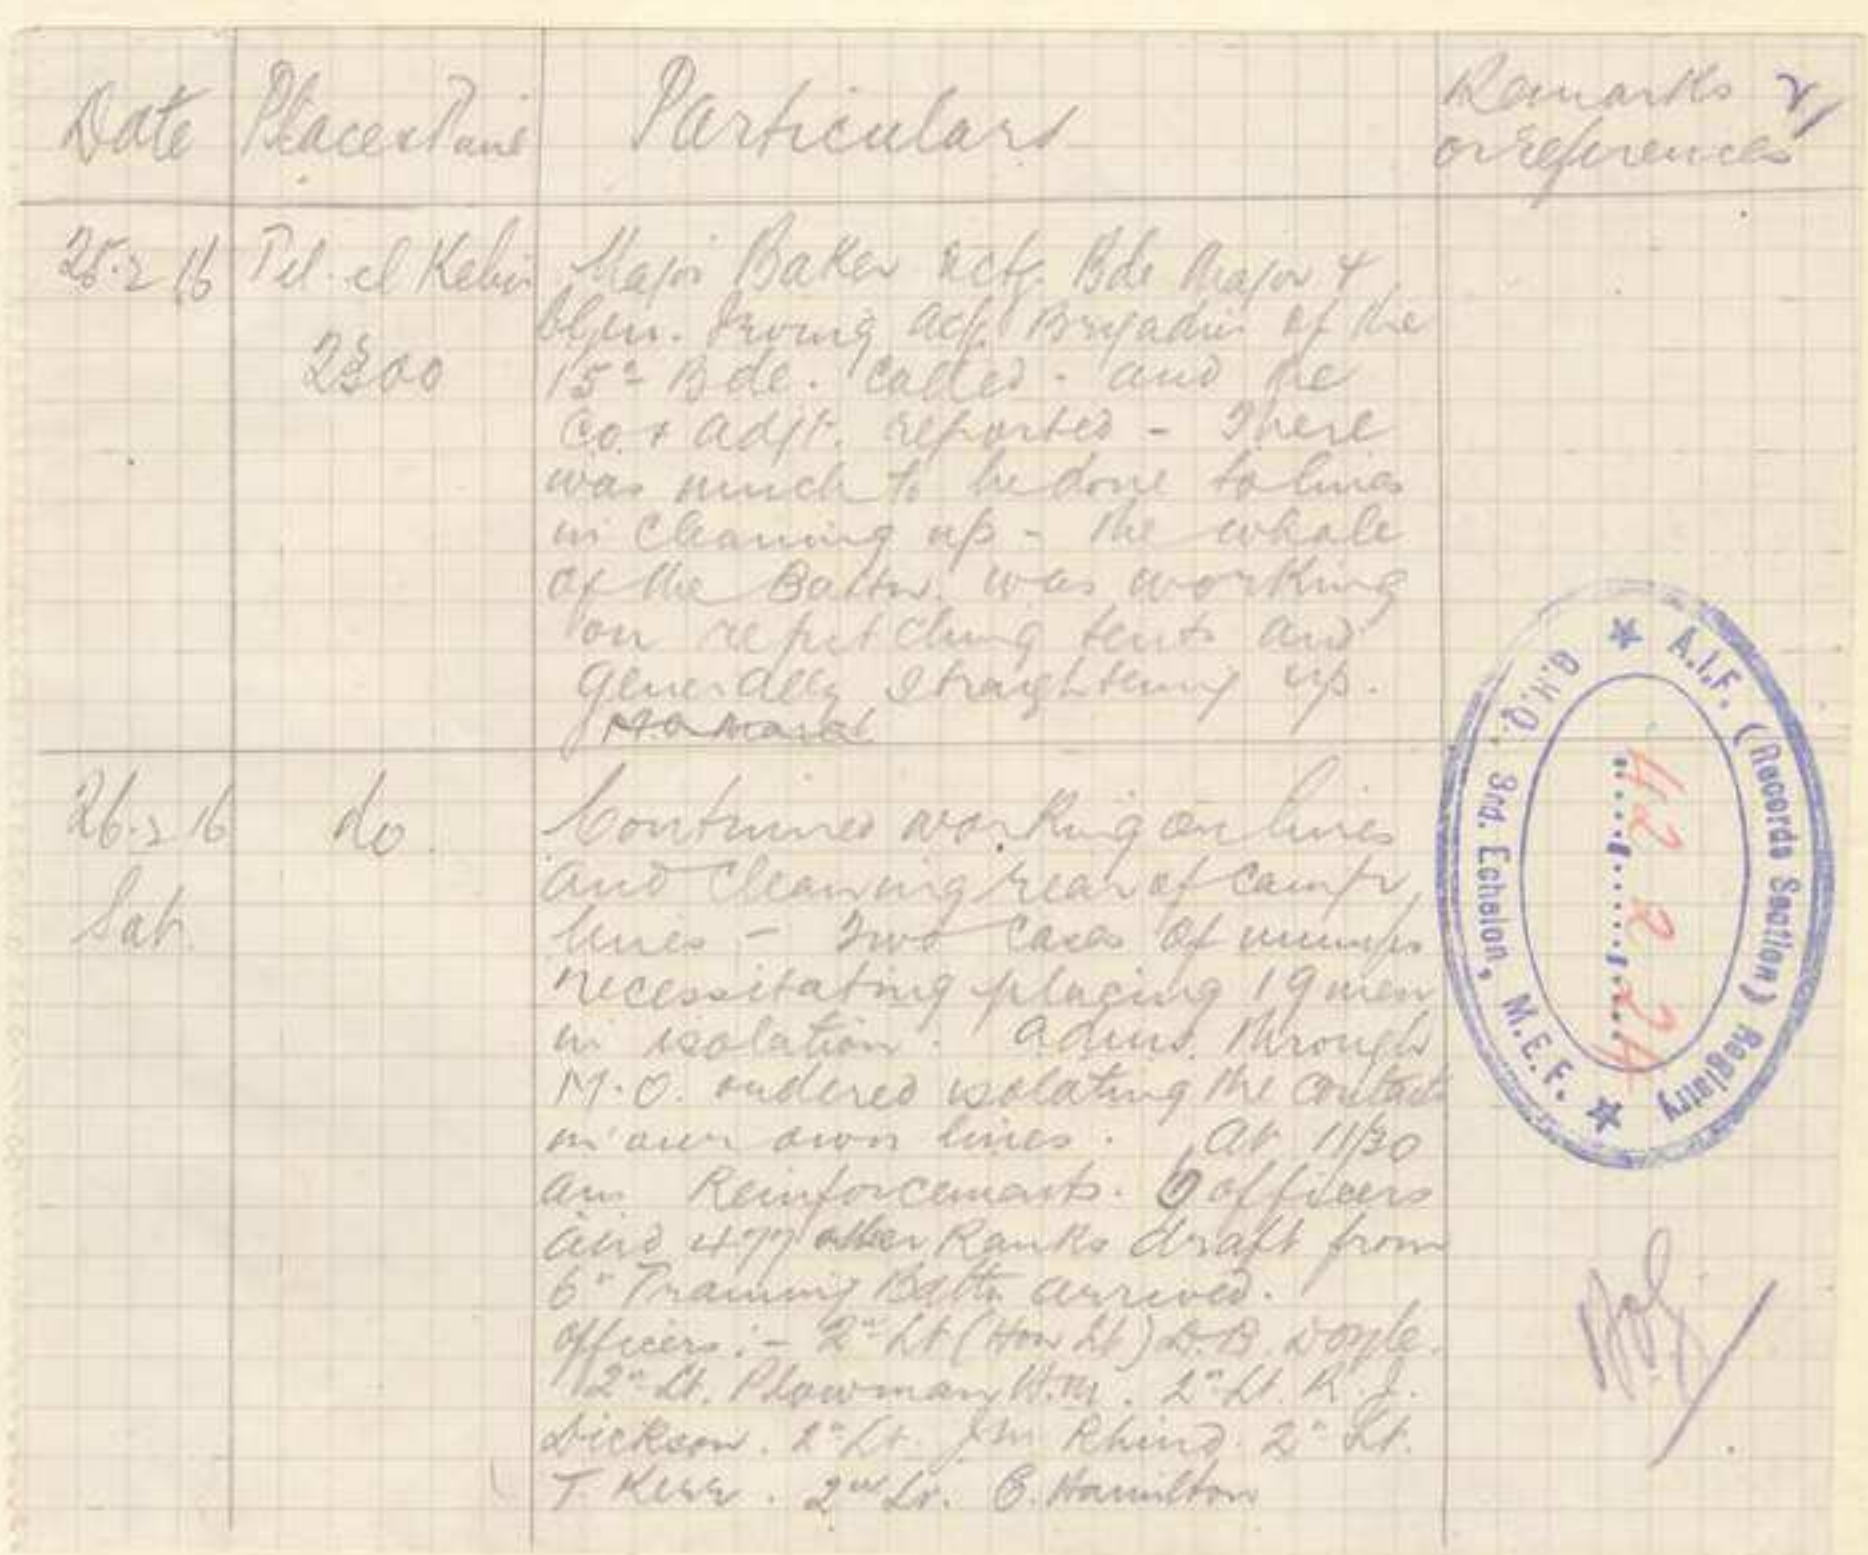 Date Place & Time Particulars Remarks
or references
25.2.16 Tel-el Kebir Major Baker actg. Bde Major &
Irving actg Brigadier of the
2300 15th Bde. called - and the
C.O. & adjt. reported - There
was much to be done to lines
in cleaning up - The whole
of the Battn. was working
on repitching tents and
generally straightening up.
26.2.16 do. Continued working on lines
and cleaning rear of camp
Sat. lines - Two cases of mumps
necessitating placing 19 men
in isolation. Adms. through
M.O. ordered isolating the contacts
in our own lines. At 11/30
am Reinforcements. 6 officers
and 477 other Ranks draft from
6th Training Battn arrived.
officers:- 2nd Lt (Hon Lt) D.B. Doyle.
2nd Lt. Plowman H.M. 2nd Lt. R.J.
Dickson. 2nd Lt. J.M. Rhind. 2nd Lt.
T. Kerr. 2nd Lt. C. Hamilton
A.I.F. (Records Section) Registry
G.H.Q., 3rd. Echelon, M.E.F.